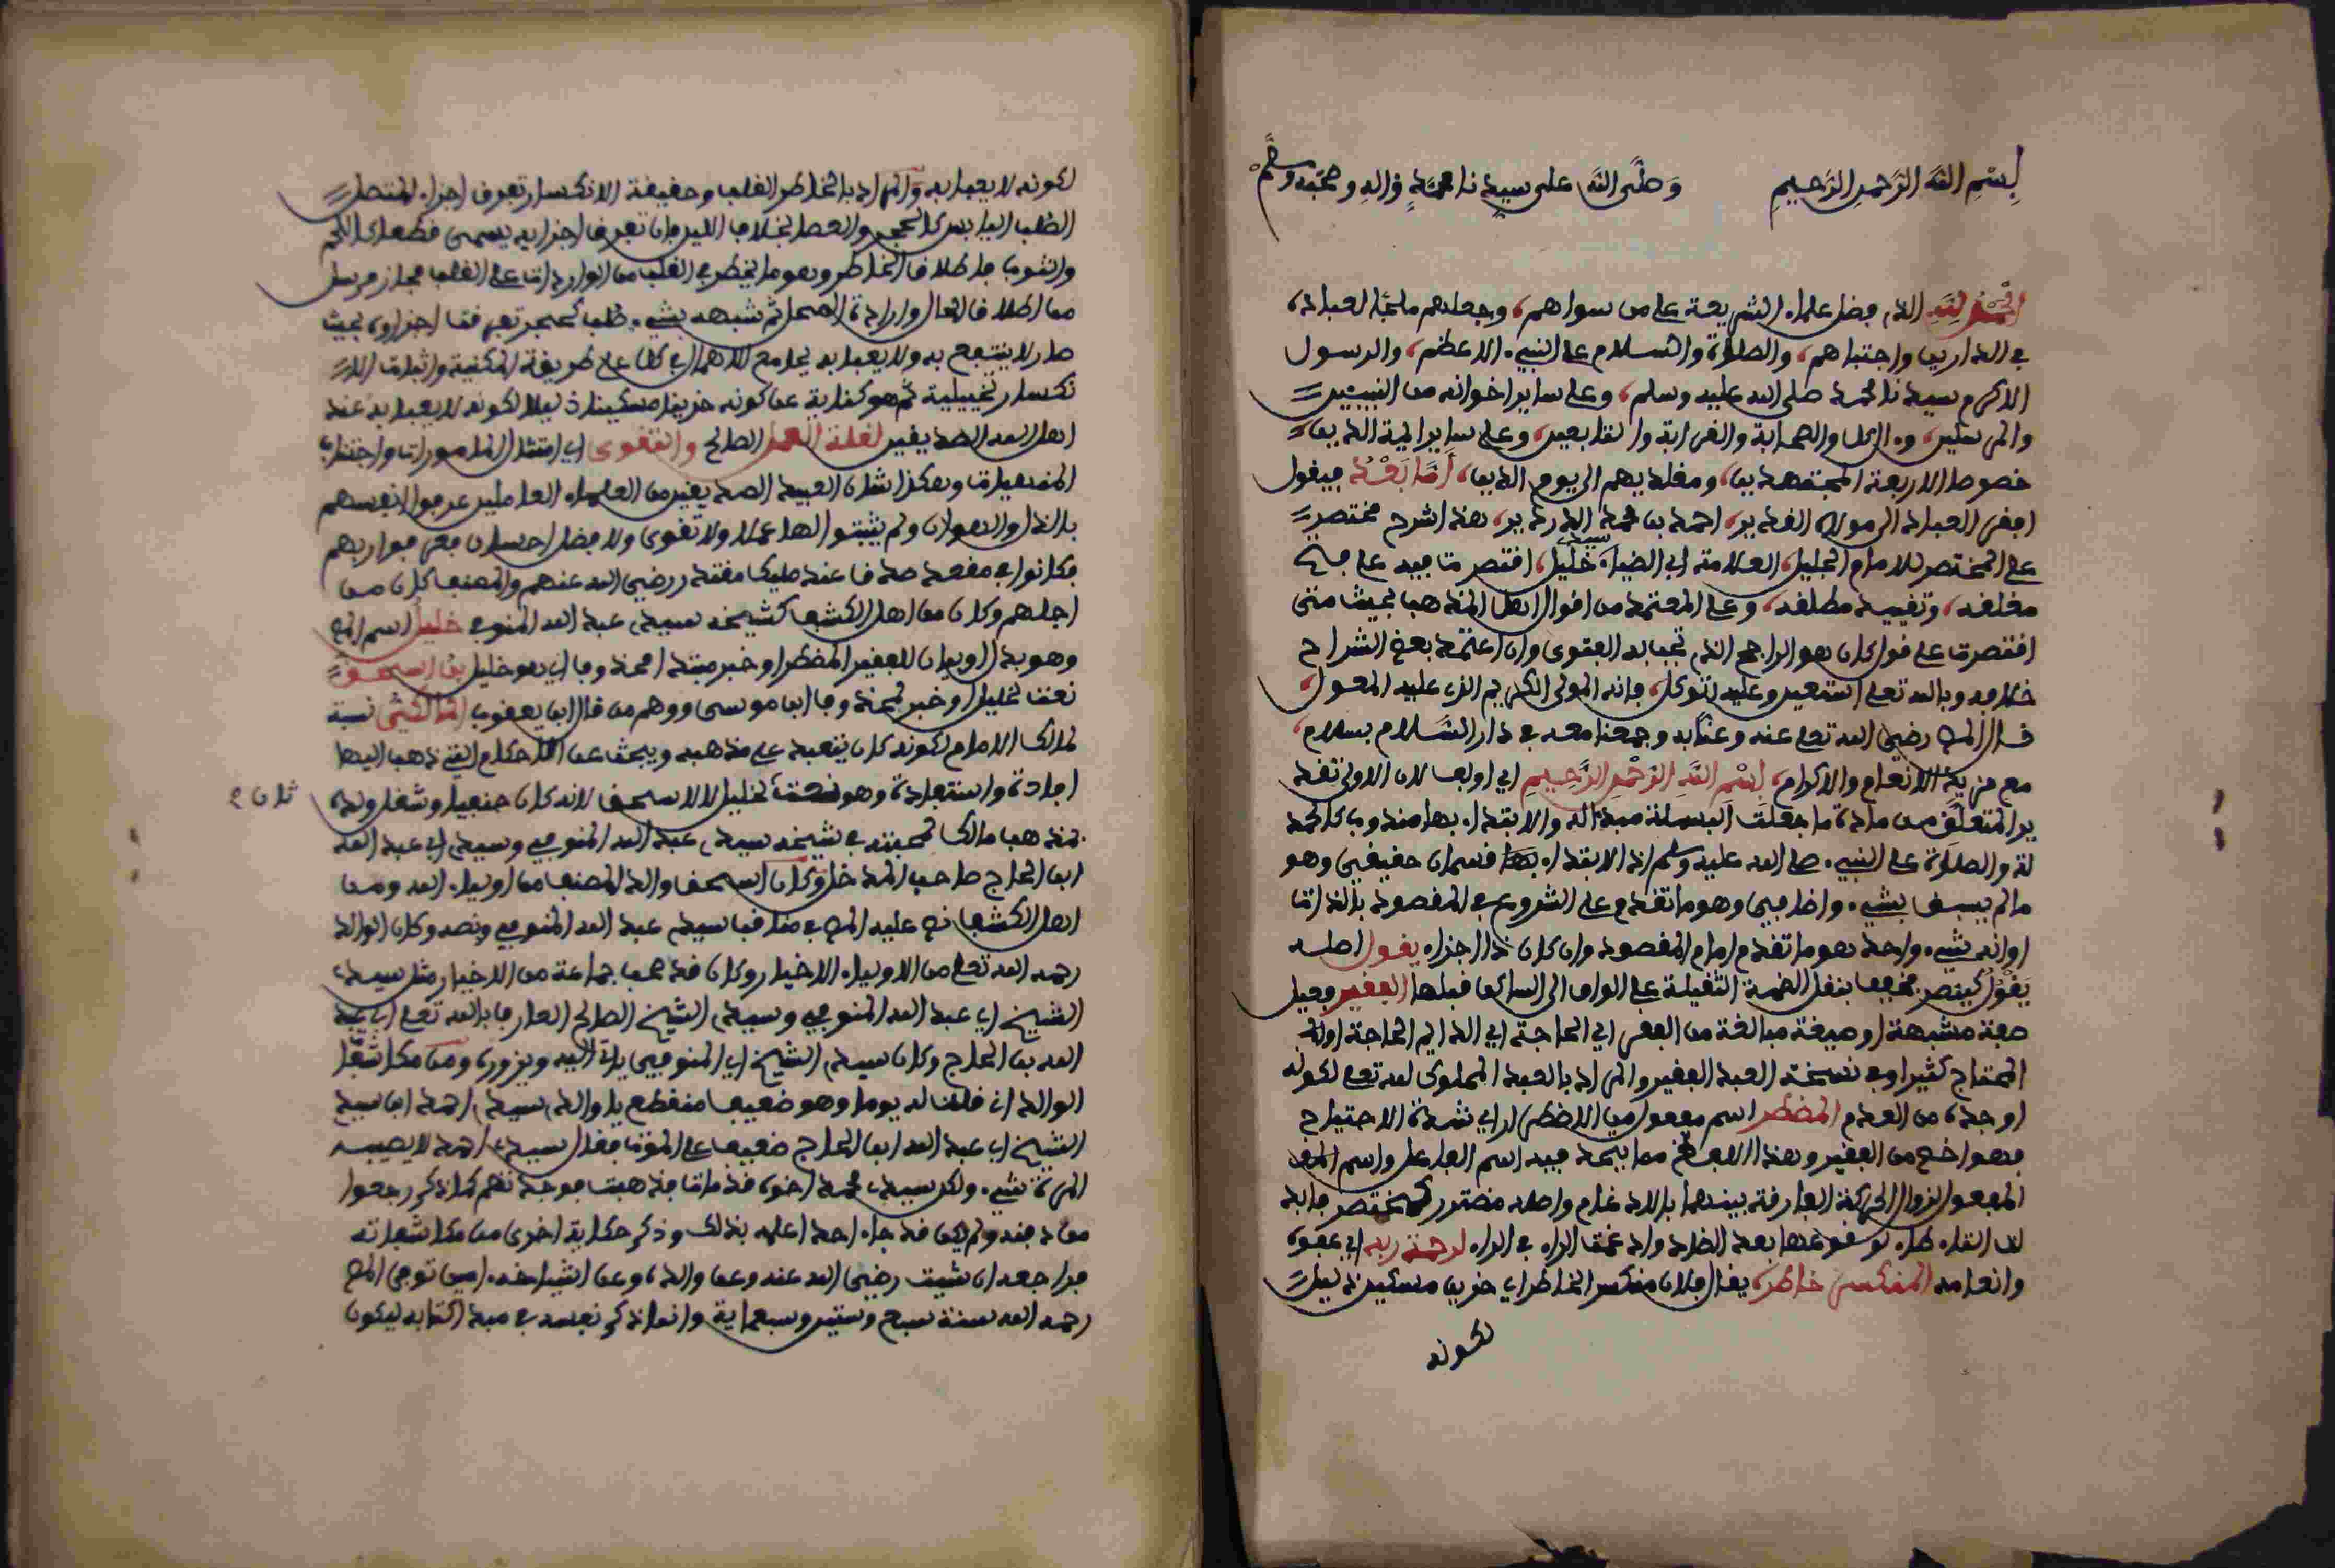 بسم الله الرحمن الرحيم وصلى الله على سيدنا محمد واله وصحبه وسلم
الحمد لله الذي فضل علماء الشريعة على من سواهم، وجعلهم ملجا لعباده،
في الدارين واجتباهم، والصلاة والسلام على النبي الاعظم، والرسول
الاكرم سيدنا محمد صلى الله عليه وسلم، وعلى ساير اخوانه من النبيين
والمرسلين، وءال كل والصحابة والقرابة والتابعين، وعلى ساير ايمة الدين
خصوصا الاربعة المجتهدين، ومقلديهم الى يوم الدين، اما بعد فيقول
افقر العباد الى مولاه القدير، احمد بن محمد الدردير، هذا شرح مختصر
على المختصر للامام الجليل، العلامة ابي الضياء سيدي خليل، اقتصرت فيه على فتح
مغلقه، وتقييد مطلقه، وعلى المعتمد من اقوال اهل المذهب بحيث متى
اقتصرت على قول كان هو الراجح الذي تجب به الفتوى وان اعتمد بعض الشراح
خلافه وبالله تعلى استعين وعليه اتوكل، فانه المولى الكريم الذي عليه المعول،
قال المص رضي الله تعلى عنه وعنا به وجمعنا معه في دار السلام بسلام،
مع مزيد الانعام والاكرام، بسم الله الرحمن الرحيم اي اولف لان الاولى تقد
ير المتعلق من مادة ما جعلت البسملة مبدا له والابتداء بها مندوب كالحمد
لة والصلاة على النبي صلى الله عليه وسلم اذ الابتداء بها قسمان حقيقي وهو
ما لم يسبق بشيء واضافي وهو ما تقدم على الشروع في المقصود بالذات
او انه شيء واحد هو ما تقدم امام المقصود وان كان ذا اجزاء يقول اصله
يقول كينصر مخفف بنقل الضمة الثقيلة على الواو الى الساكن قبلها الفقير فعيل
صفة مشبهة او صيغة مبالغة من الفقر اي الحاجة اي الدايم الحاجة او
المحتاج كثيرا وفي نسخة العبد الفقير والمراد بالعبد المملوك لله تعلى لكونه
اوجده من العدم المضطر اسم مفعول من الاضطرار اي شدة الاحتياج
فهو اخص من الفقير وهذا اللفظ مما يتحد فيه اسم الفاعل واسم
المفعول لزوال الحركة الفارقة بينهما بالادغام واصله مضترر كمختصر فابد
لت التاء طاء لوقوعها بعد الضاد وادغمت الراء في الراء لرحمة ربه اي عفوه
وانعامه المنكسر خاطره يقال فلان منكسر الخاطر اي حزين مسكين ذليل
لكونه
لكونه لا يعبا به والمراد بالخاطر القلب وحقيقة الانكسار تفرق اجزاء المتصل
الصلب اليابس كالحجر والعصا بخلاف اللين فان تفرق اجزايه يسمى قطعا كاللحم
والثوب فاطلاق الخاطر وهو ما يخطر في القلب من الواردات على القلب مجاز مرسل
من اطلاق الحال وارادة المحل ثم شبهه بشيء صلب كحجر تفرقت اجزاوه بحيث
صار لا ينتفع به ولا يعبا به بجامع الاهمال في كل على طريق المكنية واثبات الا
نكسار تخييلية ثم هو كناية عن كونه حزينا مسكينا ذليلا لكونه لا يعبا به عند
اهل الله الصديقين لقلة العمل الصالح والتقوى اي امتثال المامورات واجتناب
المنهيات وهكذا شان العبيد الصديقين من العلماء العاملين عرفوا انفسهم
بالذل والهوان ولم يثبتوا لها عملا ولا تقوى ولا فضل احسان فعرفوا ربهم
فكانوا في مقعد صدق عند مليك مقتدر رضي الله عنهم والمصنف كان من
اجلهم وكان من اهل الكشف كشيخه سيدي عبد الله المنوفي خليل اسم المص
وهو بدل او بيان للفقير المضطر او خبر مبتدا محذوف اي هو خليل بن اسحق
نعت لخليل او خبر لمحذوف ابن موسى ووهم من قال ابن يعقوب المالكي نسبة
لمالك الامام لكونه كان يتعبد على مذهبه ويبحث عن الاحكام التي ذهب اليها
افادة واستفادة وهو نعت ثان لخليل لا لاسحق لانه كان حنفيا وشغل ولده
بمذهب مالك لمحبته في شيخه سيدي عبد الله المنوفي وسيدي ابي عبد الله
ابن الحاج صاحب المدخل وكان اسحق والد المصنف من اولياء الله ومن
اهل الكشف نص عليه المص في مناقب سيدي عبد الله المنوفي ونصه وكان الوالد
رحمه الله تعلى من الاولياء الاخيار وكان قد صحب جماعة من الاخيار مثل سيدي
الشيخ ابي عبد الله المنوفي وسيدي الشيخ الصالح العارف بالله تعلى ابي عبد
الله بن الحاج وكان سيدي الشيخ ابي المنوفي ياتي اليه ويزوره ومن مكاشفا
الوالد اني قلت له يوما وهو ضعيف منقطع يا والدي سيدي احمد ابن سيدي
الشيخ ابي عبد الله ابن الحاج ضعيف على الموت فقال سيدي احمد لا يصيبه
المرة شيء ولكن سيدي محمد اخوه قد مات فذهبت فوجدتهم كما ذكر رجعوا
من دفنه ولم يكن قد جاء احد اعلمه بذلك وذكر حكاية اخرى من مكاشفاته
فراجعه ان شيت رضي الله عنه وعن والده وعن اشياخه ءامين توفي المص
رحمه الله سنة سبع وستين وسبعماية وانما ذكر نفسه في مبدا كتابه ليكون